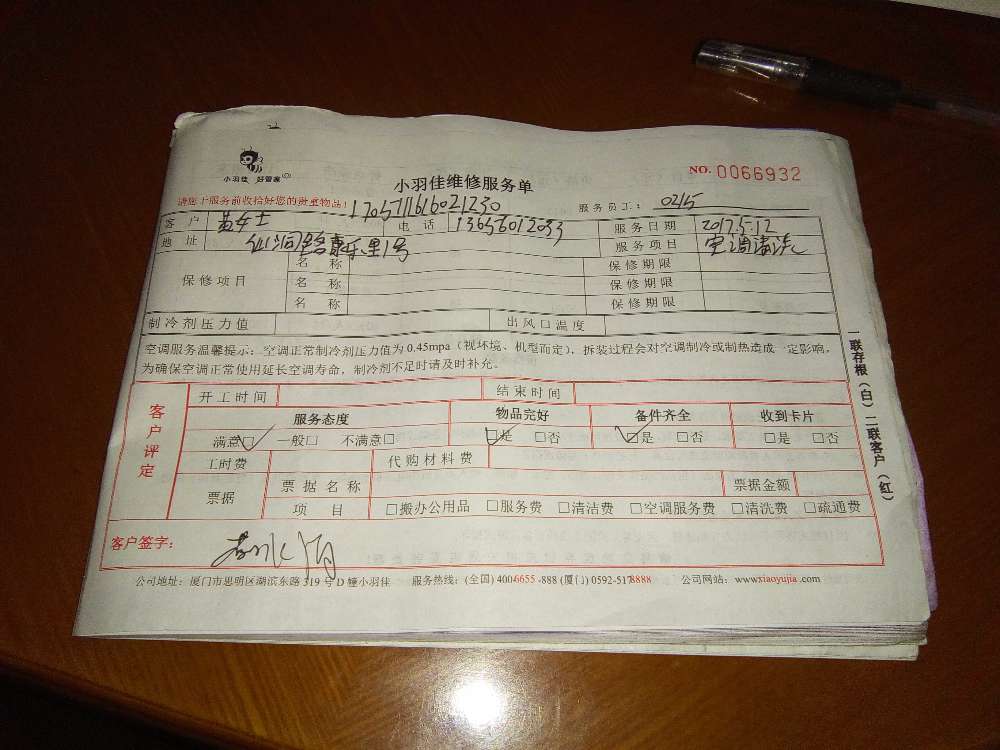 小羽佳 好管家
小羽佳维修服务单
NO. 0066932
请您于服务前收拾好您的贵重物品!
1705111616021230
服务员工: 0215
客户 黄女士 电话 13656012033 服务日期 2017.5.12
地址 仙洞路康乐里1号 服务项目 空调清洗
保修项目 名称 保修期限
名称 保修期限
名称 保修期限
制冷剂压力值 出风口温度
空调服务温馨提示: 空调正常制冷剂压力值为0.45mpa(视环境、机型而定),拆装过程会对空调制冷或制热造成一定影响,
为确保空调正常使用延长空调寿命,制冷剂不足时请及时补充。
客户评定
开工时间 结束时间
服务态度 物品完好 备件齐全 收到卡片
满意□ 一般□ 不满意□ □是 □否 □是 □否 □是 □否
工时费 代购材料费
票据 票据名称 票据金额
项目 □搬办公用品 □服务费 □清洁费 □空调服务费 □清洗费 □疏通费
客户签字:
公司地址: 厦门市思明区湖滨东路319号D幢小羽佳 服务热线: (全国) 400-6655-888 (厦门) 0592-5178888 公司网站: www.xiaoyujia.com
一联存根(白)二联客户(红)